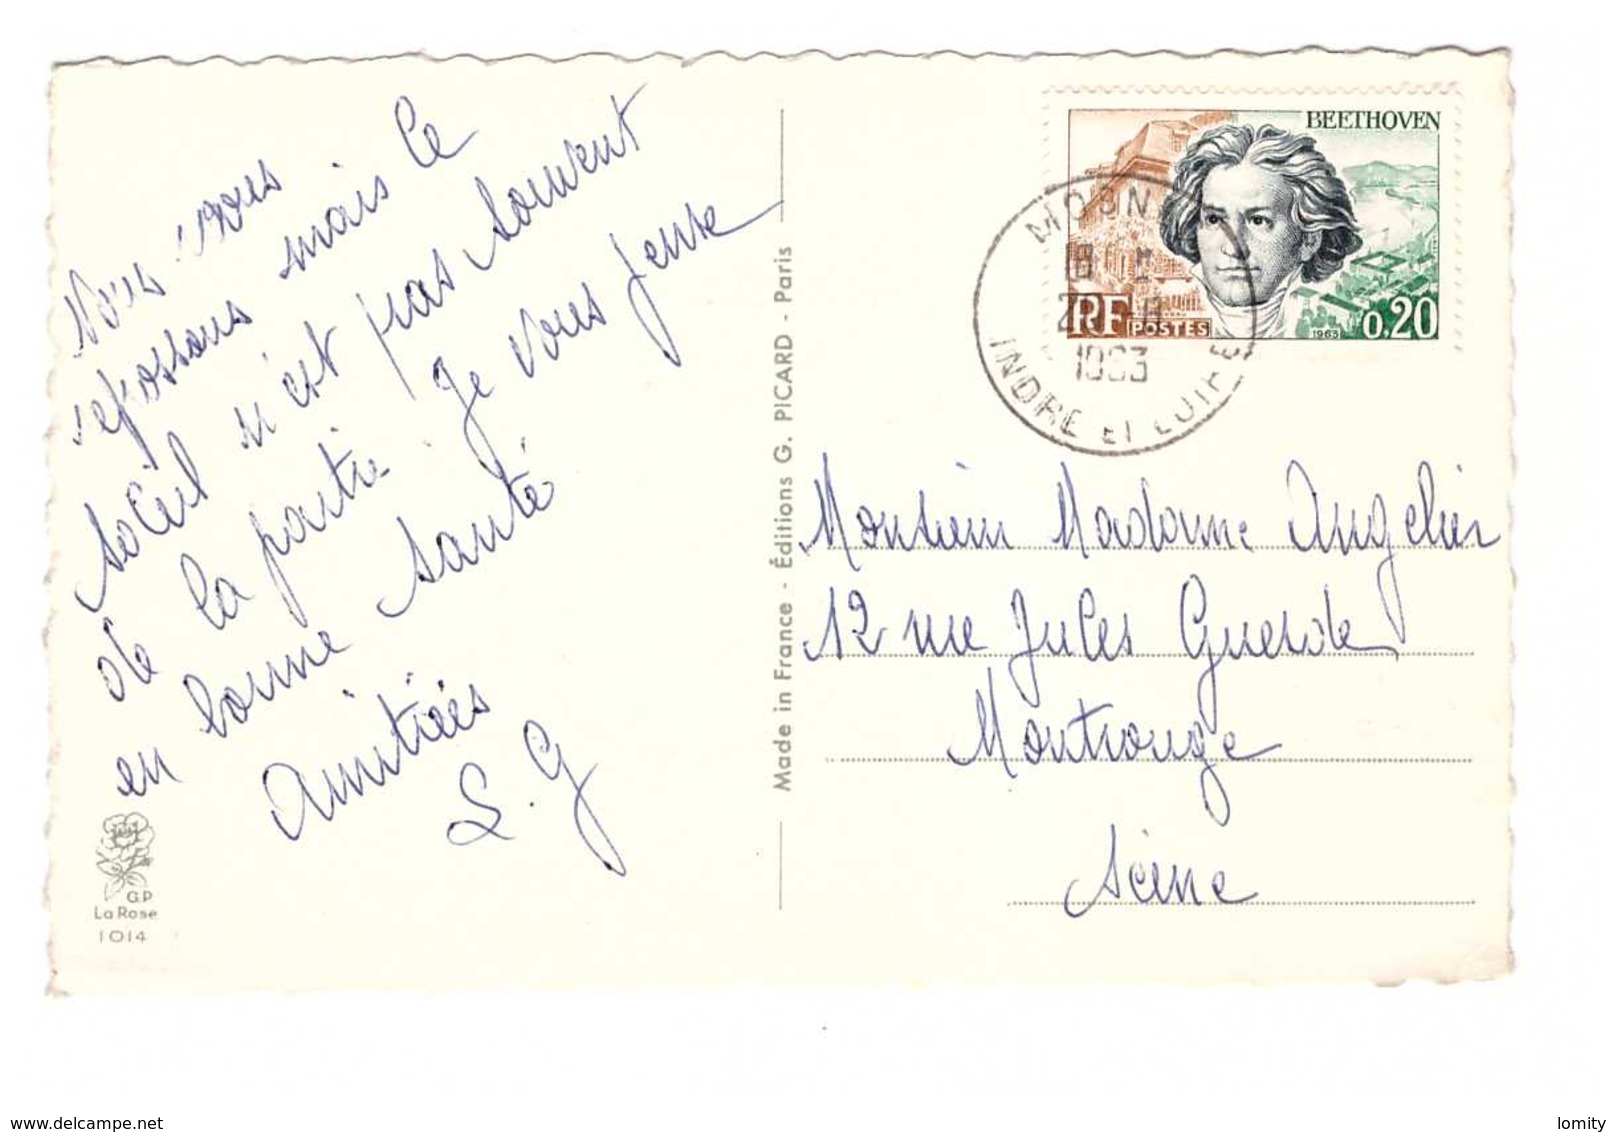 Nous nous
reposons mais le
soleil n'est pas souvent
de la partie. Je vous pense
en bonne santé
Amitiées
L. G
G.P
La Rose
1014
Made in France - Éditions G. PICARD - Paris
BEETHOVEN
RF POSTES
1963
0,20
18
1963
INDRE ET LOIRE
Monsieur Madame Angelier
12 rue Jules Guesde
Montrouge
Seine
www.delcampe.net
lomity